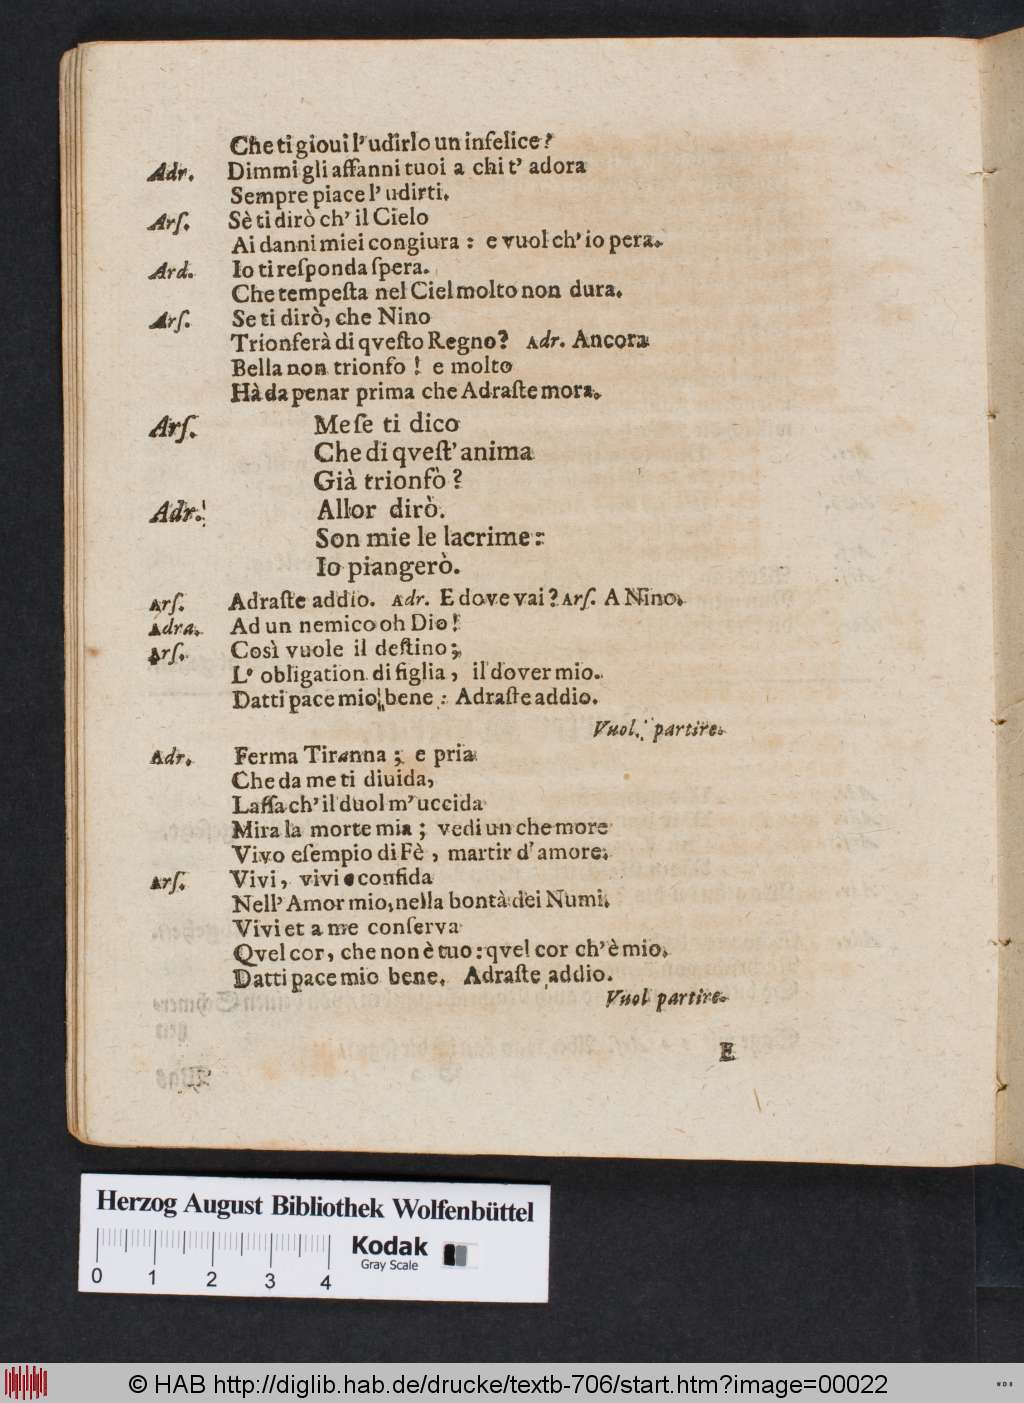 Che ti gioui l' udirlo un infelice?
Adr. Dimmi gli affanni tuoi a chi t' adora
Sempre piace l' udirti.
Arſ. Sè ti dirò ch' il Cielo
Ai danni miei congiura : e vuol ch' io pera.
Ard. Io ti reſponda ſpera.
Che tempeſta nel Ciel molto non dura.
Arſ. Se ti dirò, che Nino
Trionferà di qveſto Regno? Adr. Ancora
Bella non trionfo ! e molto
Hà da penar prima che Adraſte mora.
Arſ. Me ſe ti dico
Che di qveſt' anima
Già trionfò ?
Adr. Allor dirò.
Son mie le lacrime :
Io piangerò.
Arſ. Adraſte addio. Adr. E dove vai? Arſ. A Nino.
Adra. Ad un nemico oh Dio!
Arſ. Così vuole il deſtino;
L' obligation di figlia , il dover mio.
Datti pace mio bene : Adraſte addio.
Vuol partire.
Adr. Ferma Tiranna ; e pria
Che da me ti diuida,
Laſſa ch' il duol m' uccida
Mira la morte mia ; vedi un che more
Vivo eſempio di Fè , martir d' amore.
Arſ. Vivi, vivi e confida
Nell' Amor mio, nella bontà dei Numi.
Vivi et a me conſerva
Qvel cor, che non è tuo: qvel cor ch' è mio.
Datti pace mio bene. Adraſte addio.
Vuol partire.
E
Herzog August Bibliothek Wolfenbüttel
Kodak
Gray Scale
0 1 2 3 4
© HAB http://diglib.hab.de/drucke/textb-706/start.htm?image=00022